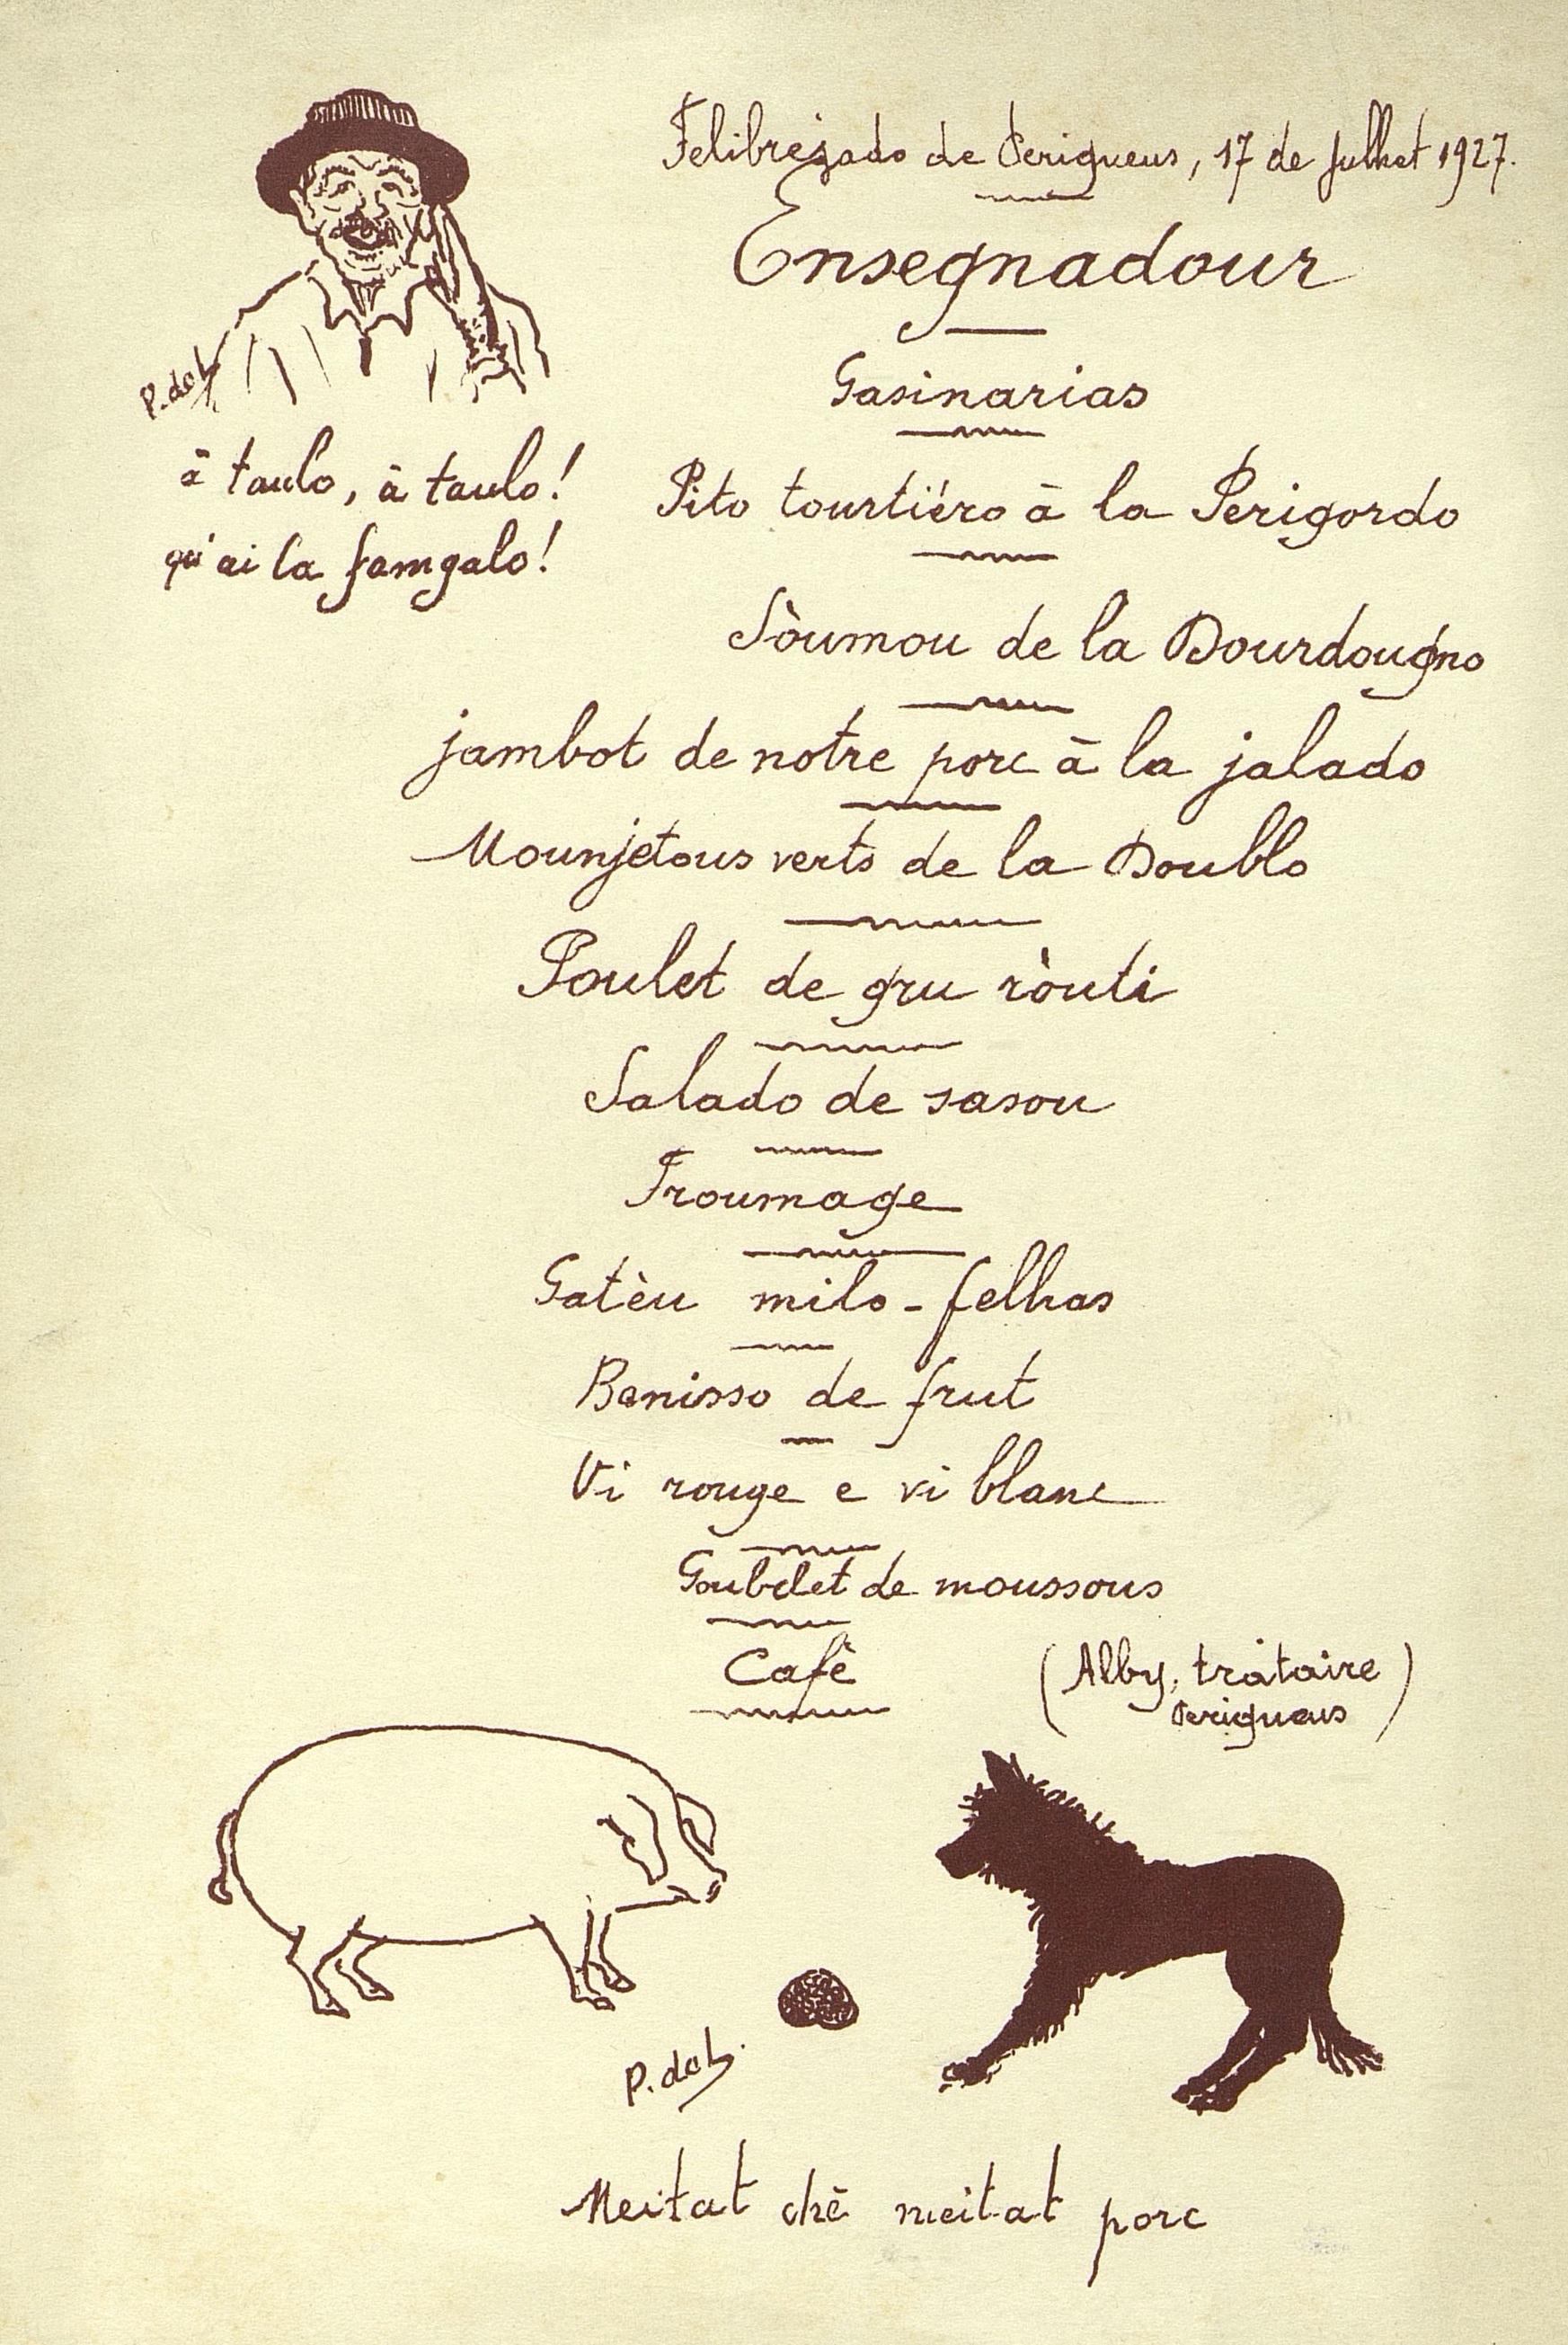 Felibrejado de Perigueus, 17 de Julhet 1927.
Ensegnadour
P. dal
à taulo, à taulo!
qu'ai la famgalo!
Gasinarias
Pito tourtiéro à la Perigordo
Sòumou de la Dourdougno
jambot de notre porc à la jalado
Mounjetous verts de la Doublo
Poulet de gru ròuti
Salado de sasou
Froumage
Gatèu milo-felhas
Banisso de frut
Vi rouge e vi blanc
Goubelet de moussous
Cafè
(Alby, trataire
Perigueus)
P. dal.
Meitat chë meitat porc